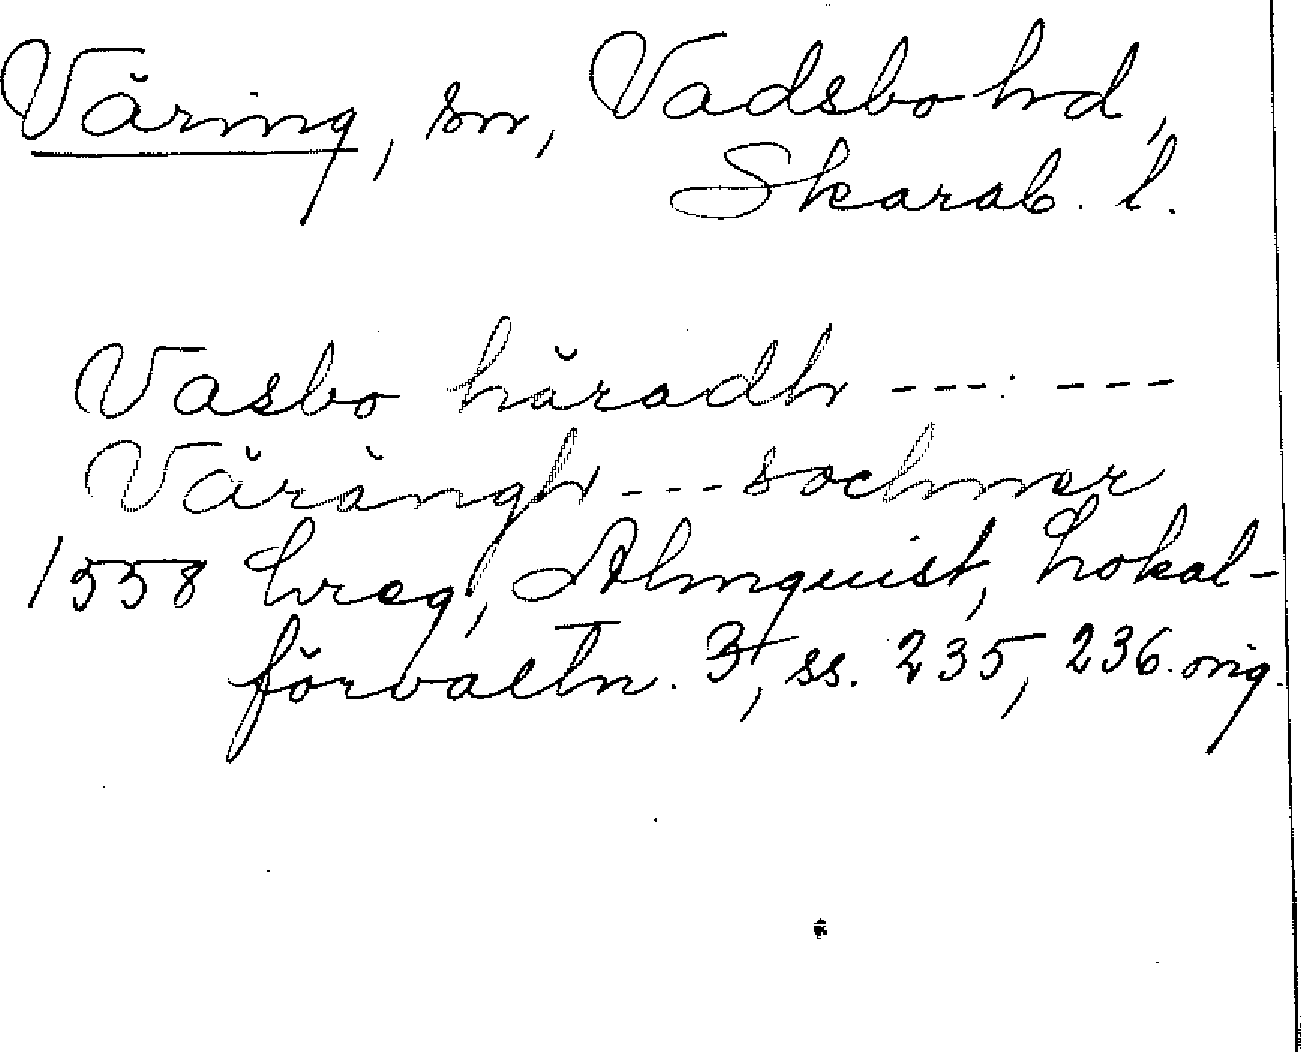 Väring, sn, Vadsbo hd,
Skarab. l.
Vasbo häradh --- ---
Värängh --- sochner
1558 hreg, Almquist, Lokal-
förvaltn. 3, ss. 235, 236. orig.